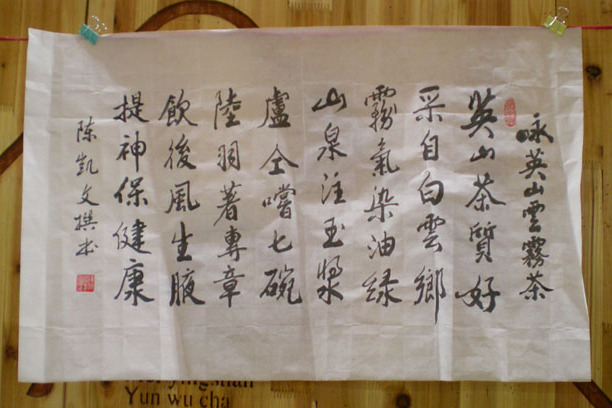 咏英山雲霧茶
英山茶質好
采自白雲鄉
霧氣染油绿
山泉注玉漿
盧仝嚐七碗
陸羽著專章
飲後風生腋
提神保健康
陈凱文撰书
Yun wu cha